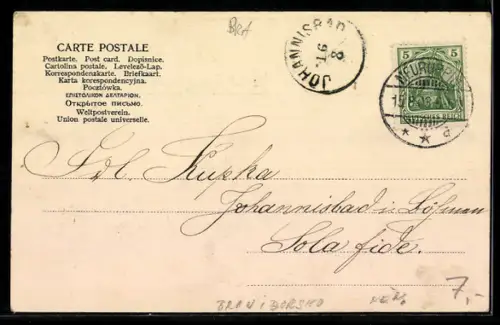 BRA
CARTE POSTALE
Postkarte. Post card. Dopisnice.
Cartolina postale. Levelező-Lap.
Korrespondenzkarte. Briefkaart.
Karta korespondencyjna.
Pocztówka.
ΕΠΙΣΤΟΛΙΚΟΝ ΔΕΛΤΑΡΙΟΝ.
Открытое письмо.
Weltpostverein.
Union postale universelle.
JOHANNISBAD
16
8
5 5
DEUTSCHES REICH
* * d
Frl. Kupka
Johannisbad i. Böhmen
Sola fide.
7,-